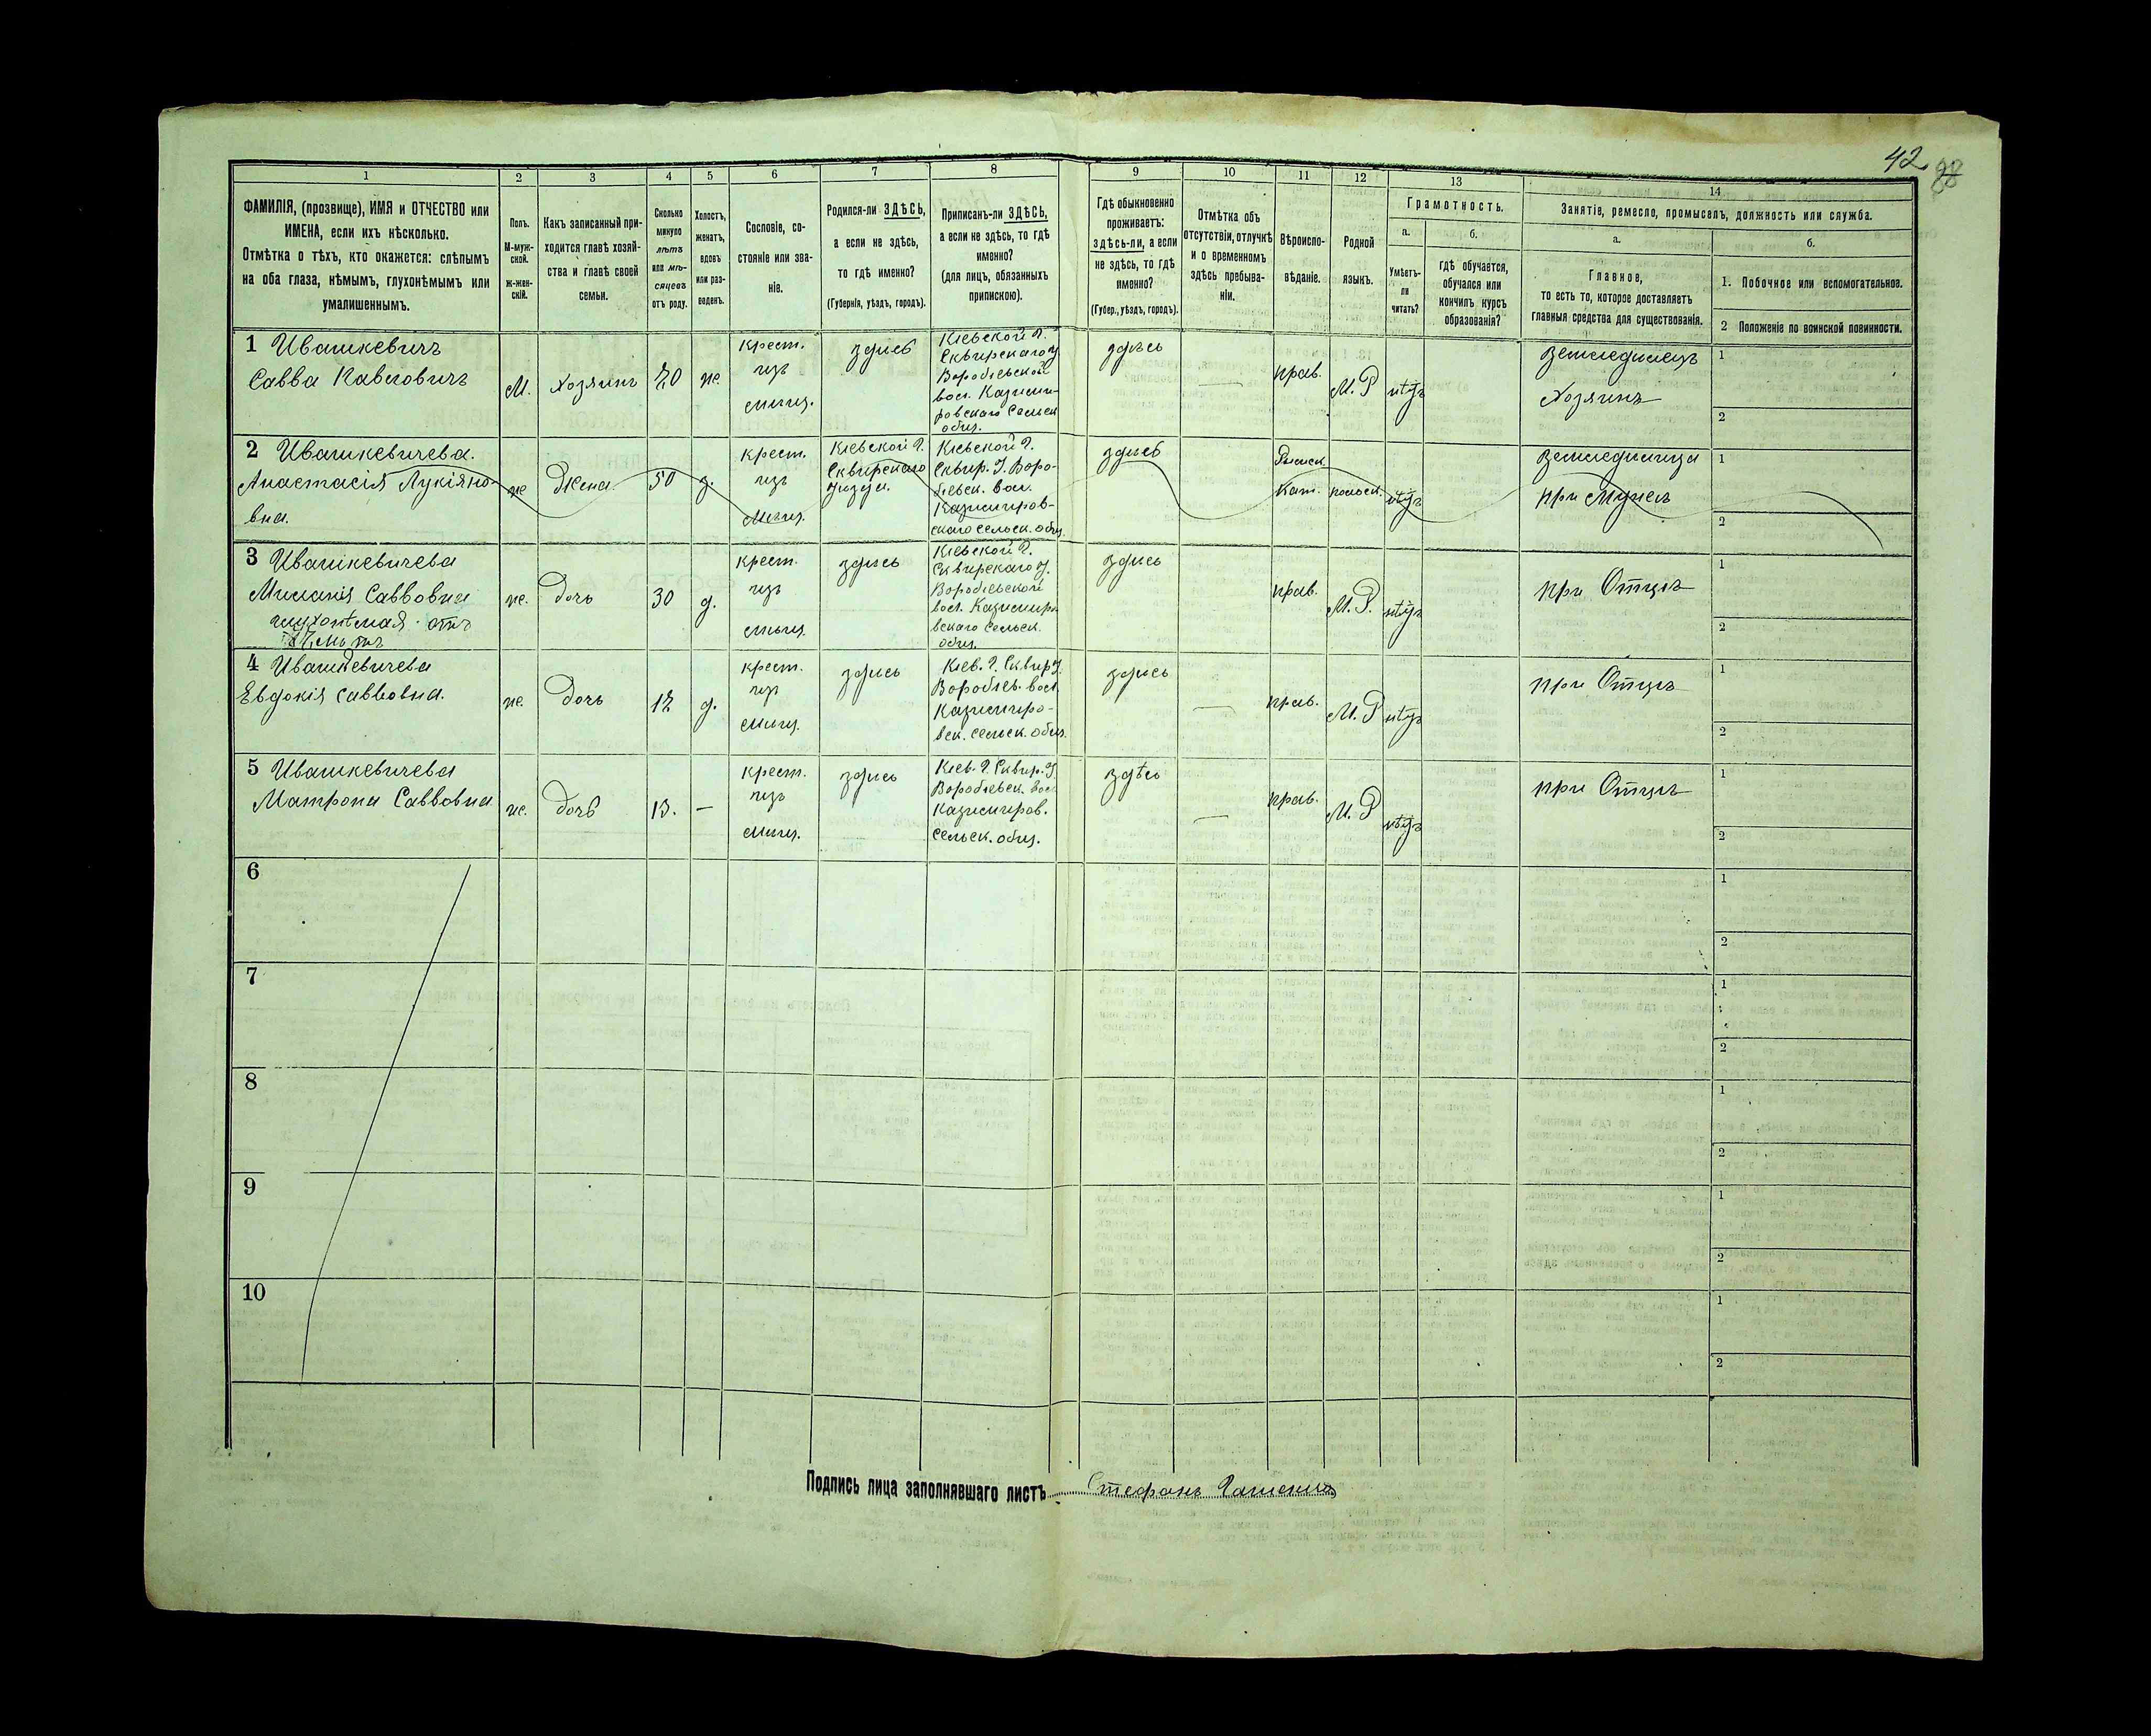 42
88
1
2
3
4
5
6
7
8
9
10
11
12
13
14
ФАМИЛІЯ, (прозвище), ИМЯ и ОТЧЕСТВО или
ИМЕНА, если ихъ нѣсколько.
Отмѣтка о тѣхъ, кто окажется: слѣпымъ
на оба глаза, нѣмымъ, глухонѣмымъ или
умалишеннымъ.
Полъ.
М-муж-
ской.
ж-жен-
скій.
Какъ записанный при-
ходится главѣ хозяй-
ства и главѣ своей
семьи.
Сколько
минуло
лѣтъ
или мѣ-
сяцевъ
отъ роду.
Холостъ,
женатъ,
вдовъ
или раз-
веденъ.
Сословіе, со-
стояніе или зва-
ніе.
Родился-ли ЗДѢСЬ,
а если не здѣсь,
то гдѣ именно?
(Губернія, уѣздъ, городъ).
Приписанъ-ли ЗДѢСЬ,
а если не здѣсь, то гдѣ
именно?
(для лицъ, обязанныхъ
припискою).
Гдѣ обыкновенно
проживаетъ:
здѣсь-ли, а если
не здѣсь, то гдѣ
именно?
(Губер., уѣздъ, городъ).
Отмѣтка объ
отсутствіи, отлучкѣ
и о временномъ
здѣсь пребыва-
ніи.
Вѣроиспо-
вѣданіе.
Родной
языкъ.
Грамотность.
а.
Умѣетъ-
ли
читать?
б.
гдѣ обучается,
обучался или
кончилъ курсъ
образованія?
Занятіе, ремесло, промыселъ, должность или служба.
а.
Главное,
то есть то, которое доставляетъ
главныя средства для существованія.
б.
1. Побочное или вспомогательное.
2 Положеніе по воинской повинности.
1 Ивашкевичъ
Савва Павловичъ
М.
Хозяинъ
70
же.
крест.
изъ
мѣщ.
здѣсь
Кіевской Г.
Сквирскаго у.
Воробіевской
вол. Казими-
ровскаго Сельск
общ.
здѣсь
прав.
М. Р
нѣтъ
Земледѣлецъ
Хозяинъ
1
2
2 Ивашкевичева.
Анастасія Лукіяно-
вна.
же
Жена
50
з.
крест.
изъ
мѣщ.
Кіевской Г.
Сквирскаго
уѣзда.
Кіевской Г.
Сквир. У. Воро-
біевск. вол.
Казимиров-
скаго сельск. общ.
здѣсь
Римск.
Кат.
польск.
нѣтъ
Земледѣлица
при мужѣ
1
2
3 Ивашкевичева
Миланія Саввовна
глухонѣмая отъ
же.
дочь
30
д.
крест.
изъ
мѣщ.
здѣсь
Кіевской Г.
Сквирскаго у.
Воробіевской
вол. Казимиро
вскаго Сельск.
общ.
здѣсь
прав.
М. Р.
нѣтъ
при Отцѣ
1
2
4 Ивашкевичева
Евдокія Саввовна.
же.
дочь
17
д.
крест.
изъ
мѣщ.
здѣсь
Кіев. Г. Сквир у.
Воробіев. вол.
Казимиро-
вск. сельск. общ.
здѣсь
прав.
М. Р
нѣтъ
при Отцѣ
1
2
5 Ивашкевичева
Матрона Саввовна
же.
дочь
13.
—
крест.
изъ
мѣщ.
здѣсь
Кіев. Г. Сквир. У.
Воробіевск. вол
Казимиров.
сельск. общ.
здѣсь
прав.
М. Р
нѣтъ
при Отцѣ
1
2
6
1
2
7
1
2
8
1
2
9
1
2
10
1
2
Подпись лица заполнявшаго листъ Стефанъ